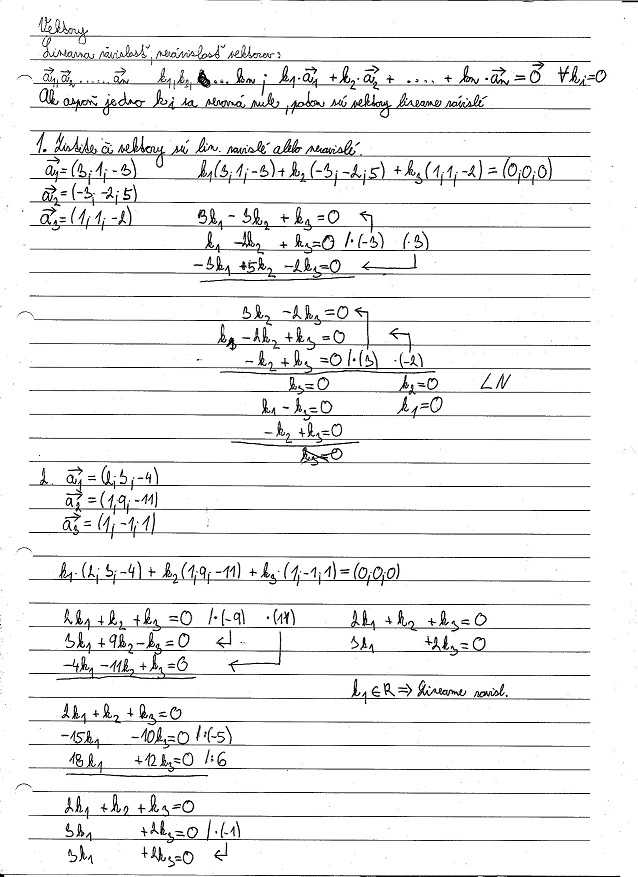 Vektory
Lineárna závislosť, nezávislosť vektorov:
a₁⃗, a₂⃗ ...... aₙ⃗ k₁, k₂, ... kn ; k₁·a₁⃗ + k₂·a₂⃗ + .... + kn·aₙ⃗ = 0⃗ ∀ki=0
Ak aspoň jedno ki sa nerovná nule, potom sú vektory lineárne závislé
1. Zistite či vektory sú lin. závislé alebo nezávislé.
a₁⃗=(3; 1; -3) k₁(3; 1; -3) + k₂(-3; -2; 5) + k₃(1; 1; -2) = (0; 0; 0)
a₂⃗=(-3; -2; 5)
a₃⃗=(1; 1; -2) 3k₁ - 3k₂ + k₃ = 0
k₁ - 2k₂ + k₃ = 0 /·(-3) (·3)
-3k₁ +5k₂ -2k₃=0
3k₂ -2k₃=0
k₁ - 2k₂ + k₃ = 0
-k₂ + k₃ = 0 /·(3) ·(-2)
k₃=0 k₂=0 LN
k₁ - k₃=0 k₁=0
-k₂ + k₃=0
k₃=0
2. a₁⃗ = (2; 3; -4)
a₂⃗ = (1; 9; -11)
a₃⃗ = (1; -1; 1)
k₁·(2; 3; -4) + k₂(1; 9; -11) + k₃·(1; -1; 1) = (0; 0; 0)
2k₁ + k₂ + k₃ = 0 /·(-9) ·(11) 2k₁ + k₂ + k₃=0
3k₁ + 9k₂ - k₃=0 3k₁ +2k₃=0
-4k₁ -11k₂ + k₃=0
k₁∈R ⇒ Lineárne závisl.
2k₁ + k₂ + k₃=0
-15k₁ -10k₃=0 /:(-5)
18k₁ +12k₃=0 /:6
2k₁ + k₂ + k₃=0
3k₁ +2k₃=0 /·(-1)
3k₁ +2k₃=0